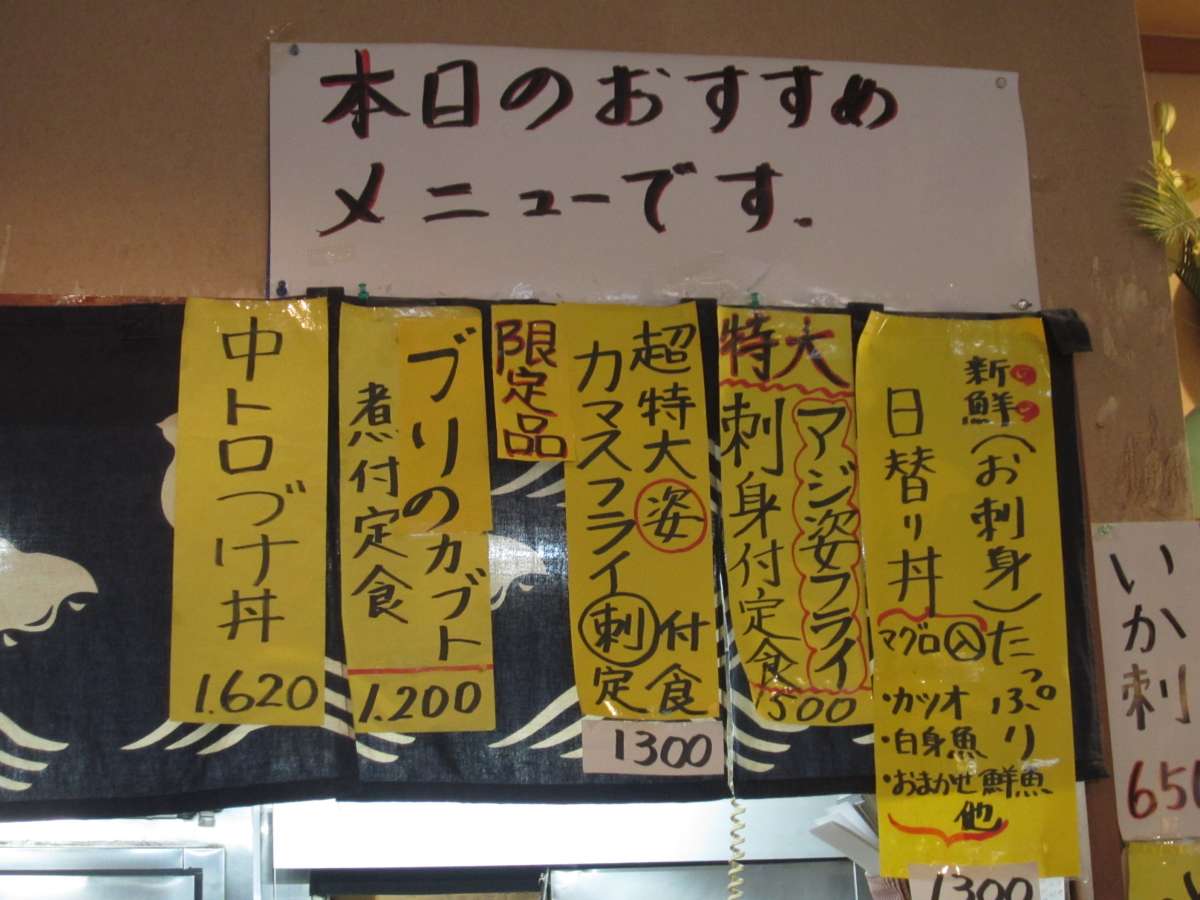 本日のおすすめ
メニューです.
新鮮の(お刺身)たっぷり
日替り丼
マグロ入
・カツオ
・白身魚
・おまかせ鮮魚
他
1300
特大
アジ姿フライ
刺身付定食
1500
超特大姿付食
カマスフライ刺定
1300
限定品
ブリのカブト
煮付定食
1.200
中トロづけ丼
1.620
いか刺